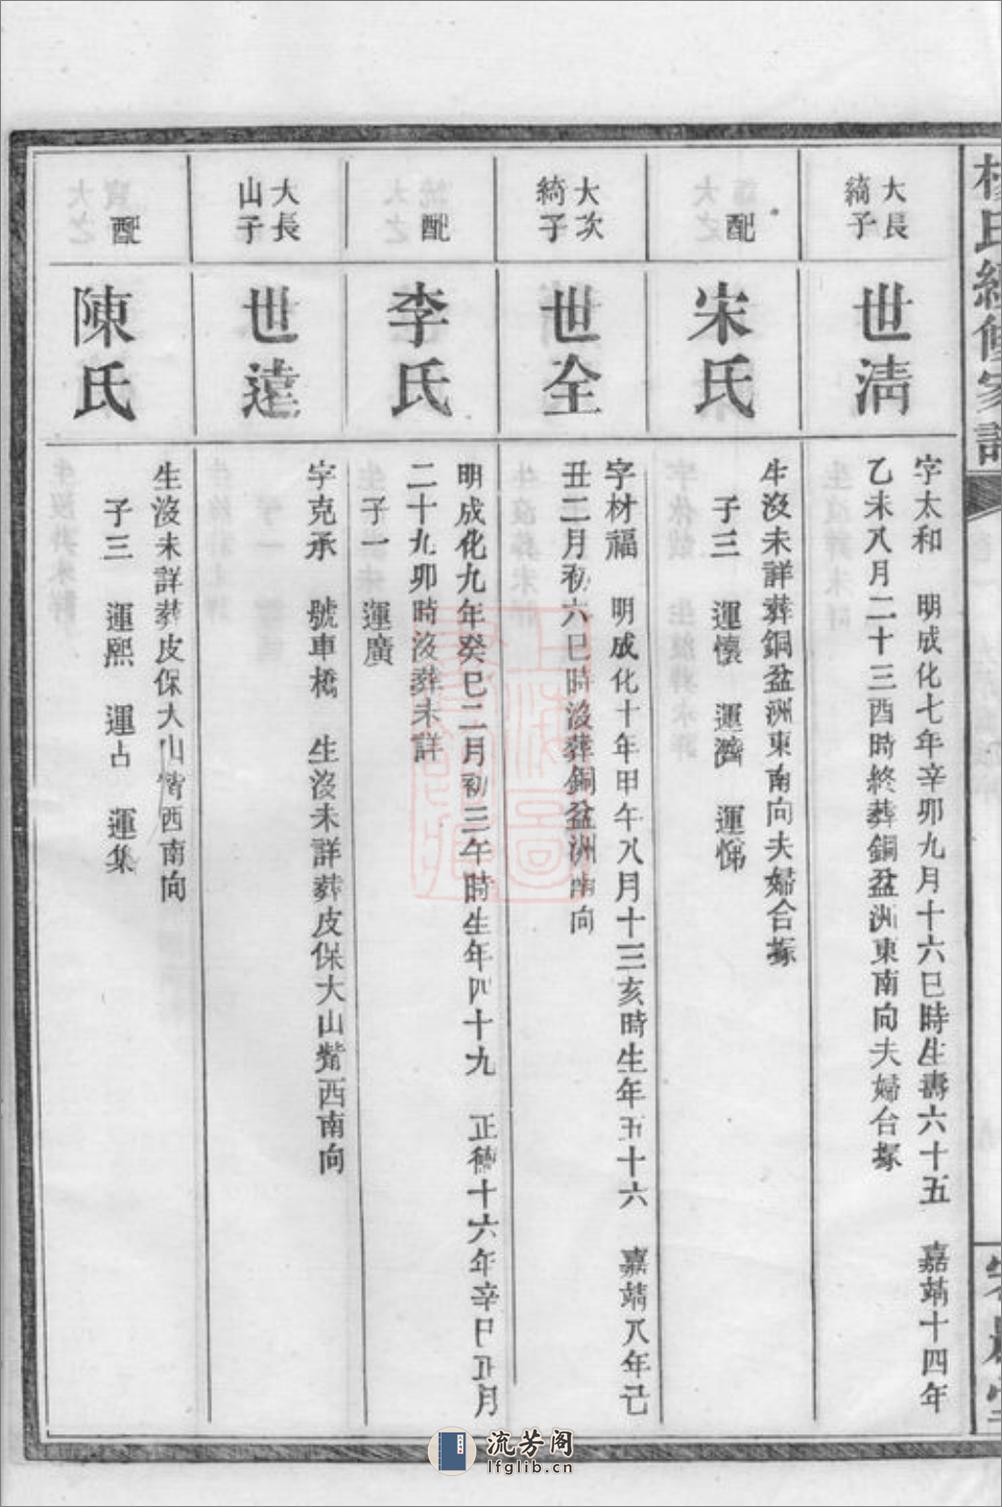 大長
綺子
世淸
字太和　明成化七年辛卯九月十六巳時生壽六十五　嘉靖十四年
乙未八月二十三酉時終葬銅盆洲東南向夫婦合塚
配
宋氏
生沒未詳葬銅盆洲東南向夫婦合塚
子三　運懷　運濟　運悌
大次
綺子
世全
字材福　明成化十年甲午八月十三亥時生年五十六　嘉靖八年己
丑二月初六巳時沒葬銅盆洲南向
配
李氏
明成化九年癸巳二月初三午時生年四十九　正德十六年辛巳正月
二十九卯時沒葬未詳
子一　運廣
大長
山子
世遠
字克承　號車橋　生沒未詳葬皮保大山觜西南向
配
陳氏
生沒未詳葬皮保大山觜西南向
子三　運熙　運占　運集
氏續修家譜
流芳阁
lfglib.cn